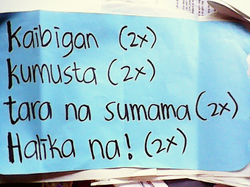 Kaibigan (2x)
kumusta (2x)
tara na sumama (2x)
Halika na! (2x)